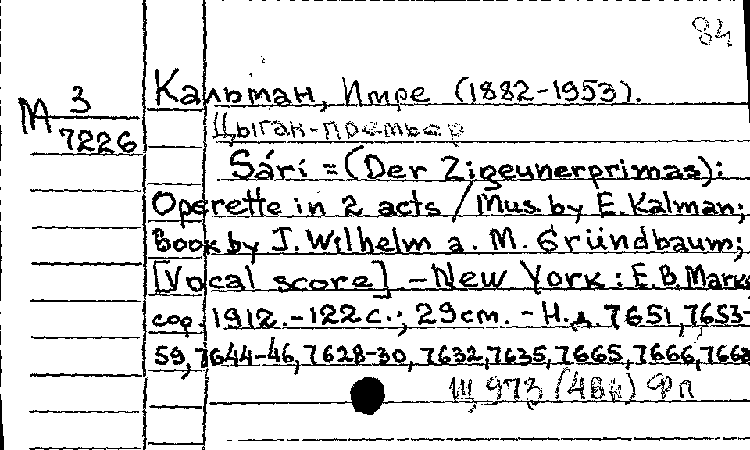 84
Кальман, Имре (1882-1953).
М 3
7226
Цыган-премьер
Sári = (Der Zigeunerprimas):
Operette in 2 acts / Mus. by E. Kalman;
Book by J. Wilhelm a. M. Gründbaum;
[Vocal score] - New York : E.B. Marks
cop. 1912. - 122 с.; 29 cm. - Н.д. 7651, 7653-
59, 7644-46, 7628-30, 7632, 7635, 7665, 7666, 7668
Щ 973 (4Вн) Фп